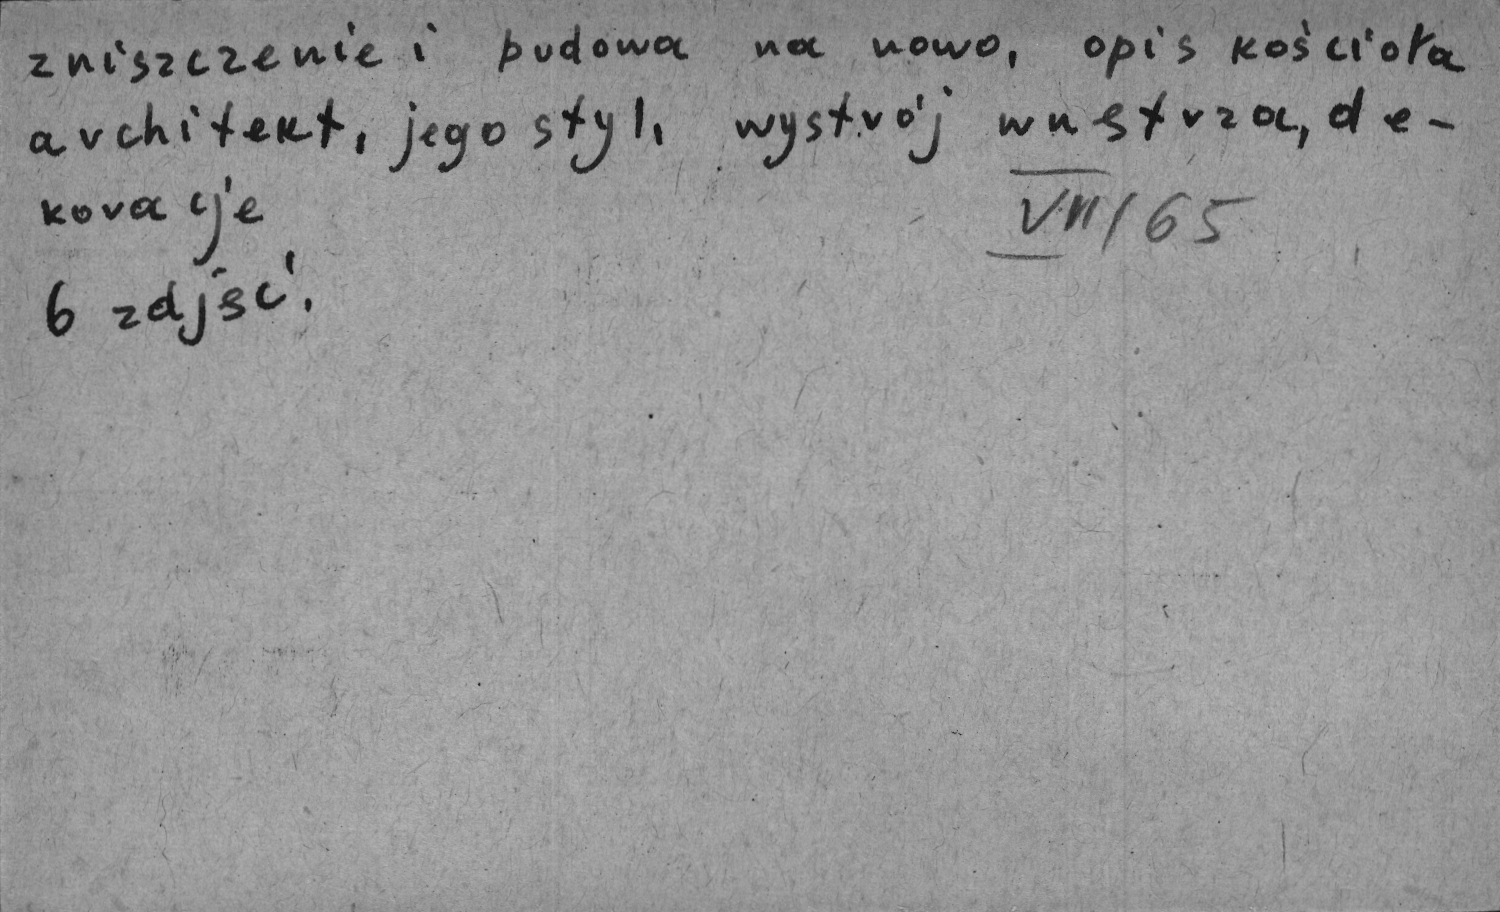 zniszczenie i budowa na nowo, opis kościoła
architekt, jego styl, wystrój wnętrza, de-
koracje
VII/65
6 zdjęć.